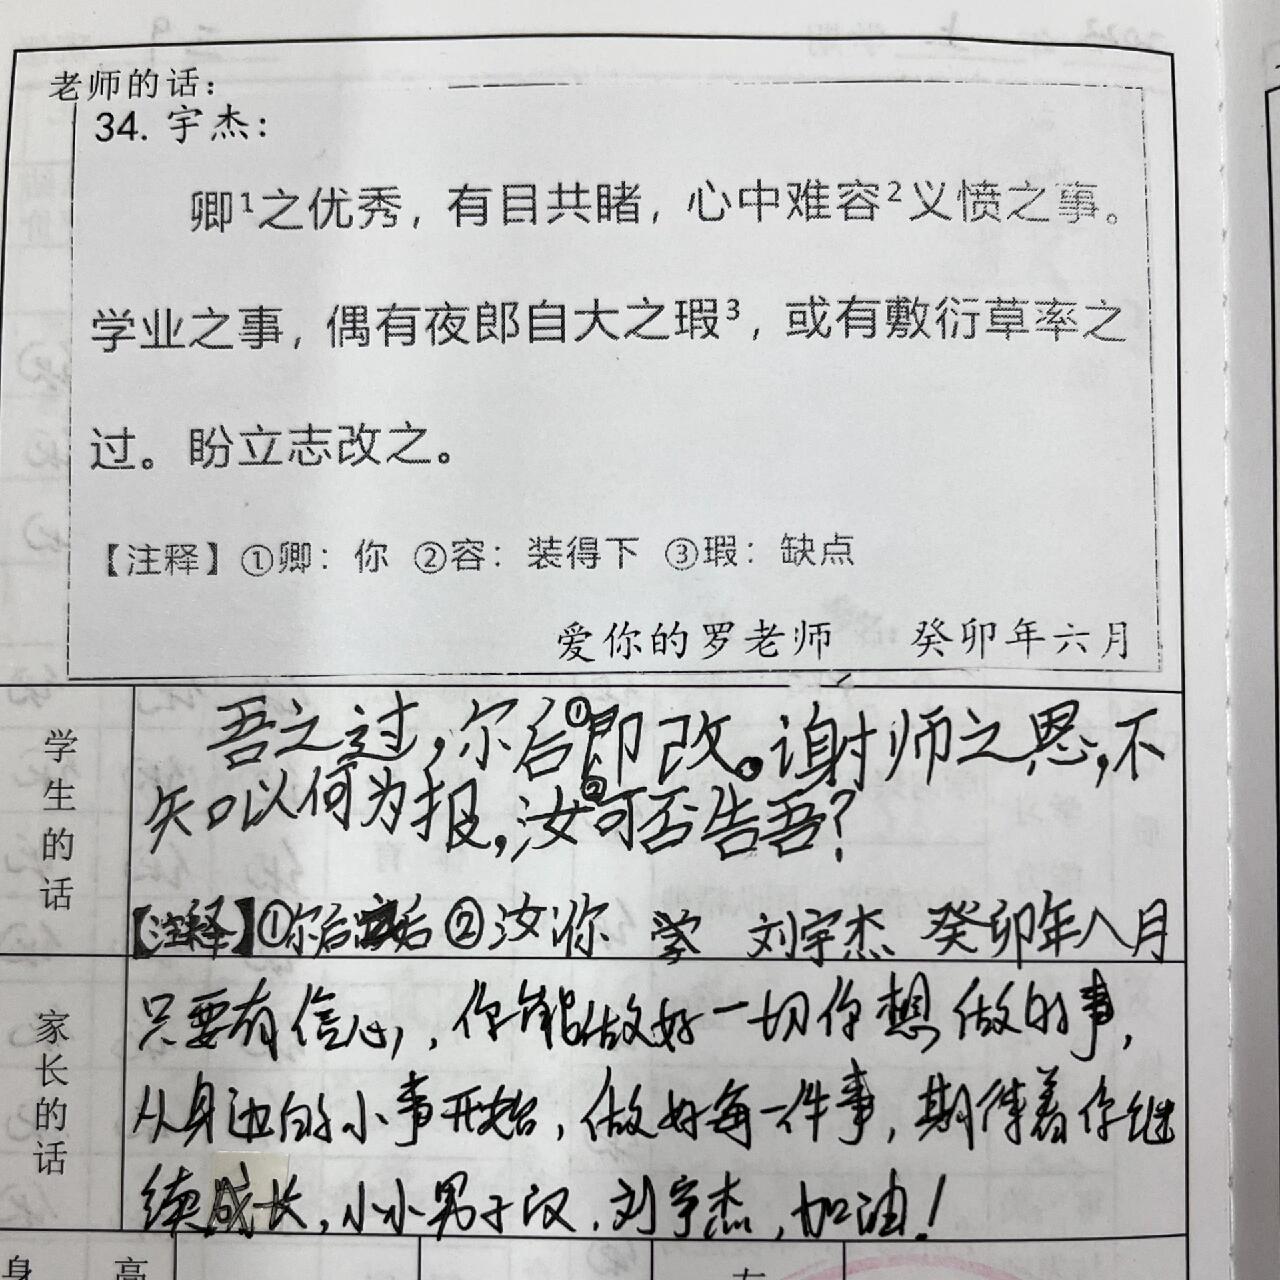 老师的话：
34. 宇杰：
卿¹之优秀，有目共睹，心中难容²义愤之事。
学业之事，偶有夜郎自大之瑕³，或有敷衍草率之
过。盼立志改之。
【注释】①卿：你 ②容：装得下 ③瑕：缺点
爱你的罗老师 癸卯年六月
学生的话
吾之过，尔后①即改。谢师之恩，不
知以何为报，汝②可否告吾？
【注释】①尔后 后 ②汝 你 刘宇杰 癸卯年八月
家长的话
只要有信心，，你能做好一切你想做的事，
从身边的小事开始，做好每一件事，期待着你继
续成长，小小男子汉，刘宇杰，加油！
身 高